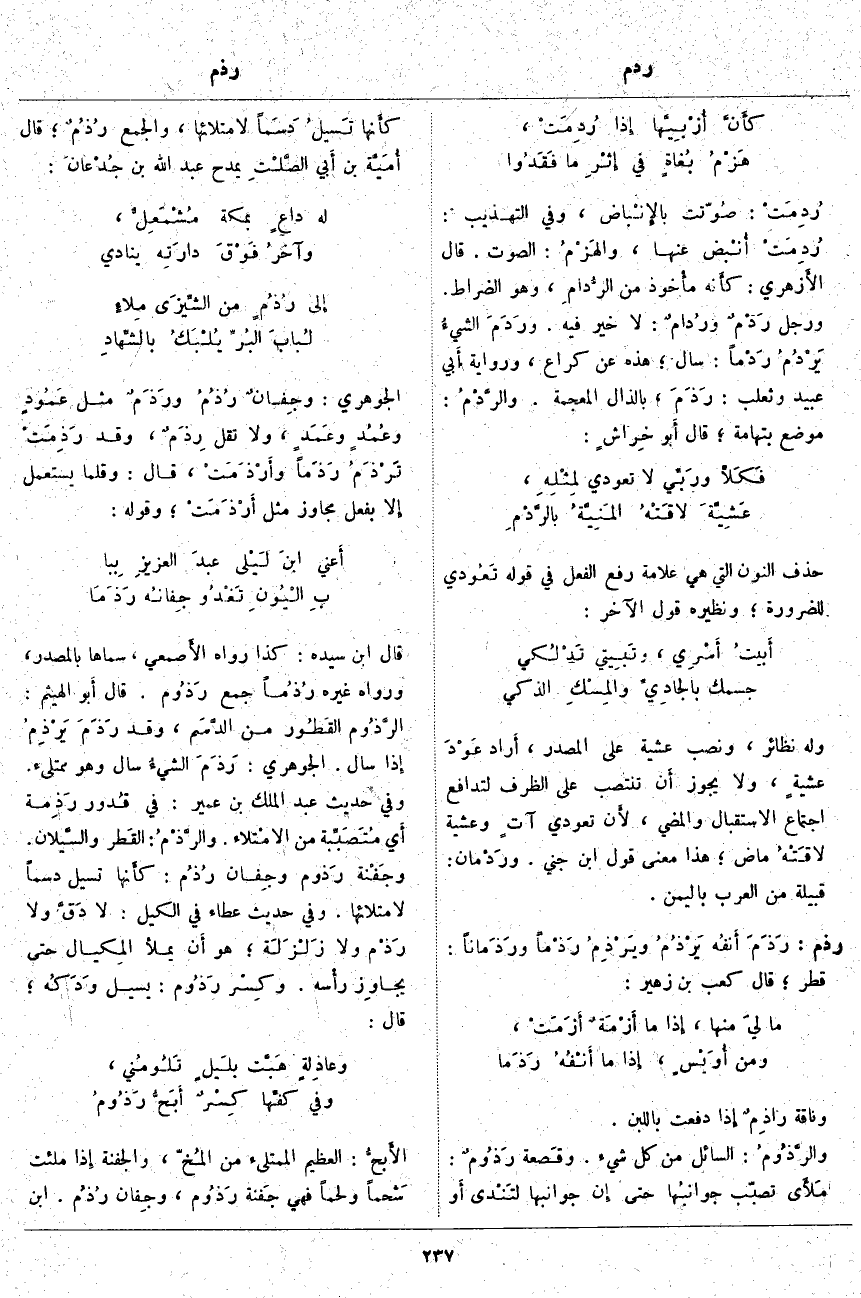 ردم
رذم
كأنَّ أُزْبِيَّها إذا رُدِمَتْ ،
هَزْمُ بُغاةٍ في إثْرِ ما فَقَدُوا
رُدِمَتْ : صُوّتت بالإنْباض ، وفي التهذيب :
رُدِمَتْ أُنْبِض عنها ، والهَزْمُ : الصوت . قال
الأزهري : كأنه مأخوذ من الرُّدام ، وهو الضراط.
ورجل رَدْمٌ ورُدامٌ : لا خير فيه . ورَدَمَ الشيءُ
يَرْدُمُ رَدْماً : سال ؛ هذه عن كراع ، ورواية أبي
عبيد وثعلب : رَذَمَ ، بالذال المعجمة . والرَّدْمُ :
موضع بتهامة ؛ قال أبو خِراشٍ :
فَكَلاَّ ورَبّي لا تعودي لِمِثْلِهِ ،
عَشِيَّةَ لاقَتْهُ المَنِيَّةُ بالرَّدْمِ
حذف النون التي هي علامة رفع الفعل في قوله تَعُودي
للضرورة ؛ ونظيره قول الآخر :
أَبيتُ أَسْرِي ، وتَبِيتي تَدْلُكي
جسمك بالجادِيِّ والمِسْكِ الذكي
وله نظائر ، ونصب عشية على المصدر ، أراد عَوْدَ
عشيةٍ ، ولا يجوز أن تنتصب على الظرف لتدافع
اجتماع الاستقبال والمضي ، لأن تعودي آتٍ وعشية
لاقَتْهُ ماض ؛ هذا معنى قول ابن جني . ورَدْمان:
قبيلة من العرب باليمن .
رذم : رَذَمَ أنفُه يَرْذُمُ ويَرْذِمُ رَذْماً ورَذَماناً :
قطر ؛ قال كعب بن زهير :
ما ليَ منها ، إذا ما أَزْمَةٌ أَزَمَتْ ،
ومن أُوَيْسٍ ، إذا ما أَنْفُهُ رَذَما
وناقة راذِمٌ إذا دفعت باللبن .
والرَّذُومُ : السائل من كل شيء . وقَصعة رَذُومٌ :
مَلأى تصبّب جوانبُها حتى إن جوانبها لتَنْدى أو
كأنها تَسيلُ دَسَماً لامتلائها ، والجمع رُذُمٌ ؛ قال
أُمَيَّة بن أبي الصَّلْتِ يمدح عبد الله بن جُدْعانَ :
له داعٍ بمكة مُشْمَعِلٌّ ،
وآخَرُ فَوْقَ دارَتِه ينادي
إلى رُذُمٍ من الشِّيزَى مِلاءٍ
لُبابَ البُرِّ يُلْبَكُ بالشّهادِ
الجوهري : وجِفانٌ رُذُمٌ ورَذَمٌ مثل عَمُودٍ
وعُمُدٍ وعَمَدٍ ، ولا تقل رِذَمٌ ، وقد رَذِمَتْ
تَرْذَمُ رَذَماً وأرْذَمَتْ ، قال : وقلما يستعمل
إلا بفعل مجاوز مثل أرْذَمَتْ ؛ وقوله :
أعني ابنَ لَيْلى عبدَ العزيزِ بِبا
بِ الْيُونِ تَغْدُو جِفانُه رَذَمَا
قال ابن سيده : كذا رواه الأصمعي ، سماها بالمصدر،
ورواه غيره رُذُماً جمع رَذُوم . قال أبو الهيثم :
الرَّذُوم القَطُور من الدَّسَم ، وقد رَذَمَ يَرْذِمُ
إذا سال . الجوهري : رَذَمَ الشيءُ سال وهو ممتلىء.
وفي حديث عبد الملك بن عمير : في قُدور رَذِمة
أي مُتَصَبِّبة من الامتلاء . والرَّذْمُ: القَطر والسَّيلان.
وجَفْنة رَذوم وجِفان رُذُم : كأنها تسيل دسماً
لامتلائها . وفي حديث عطاء في الكيل : لا دَقَّ ولا
رَذْم ولا زَلْزَلة ؛ هو أن يملأ المِكيال حتى
يجاوِز رأسه . وكِسْر رَذُوم : يسيل وَدَكُه ؛
قال :
وعاذِلةٍ هَبَّت بليلٍ تَلُومُني ،
وفي كفّها كِسْرٌ أبَحُّ رَذُومُ
الأبحُّ : العظيم الممتلىء من المُخّ ، والجفنة إذا ملئت
شَحماً ولحماً فهي جَفنة رَذُوم ، وجِفان رُذُم . ابن
٢٣٧